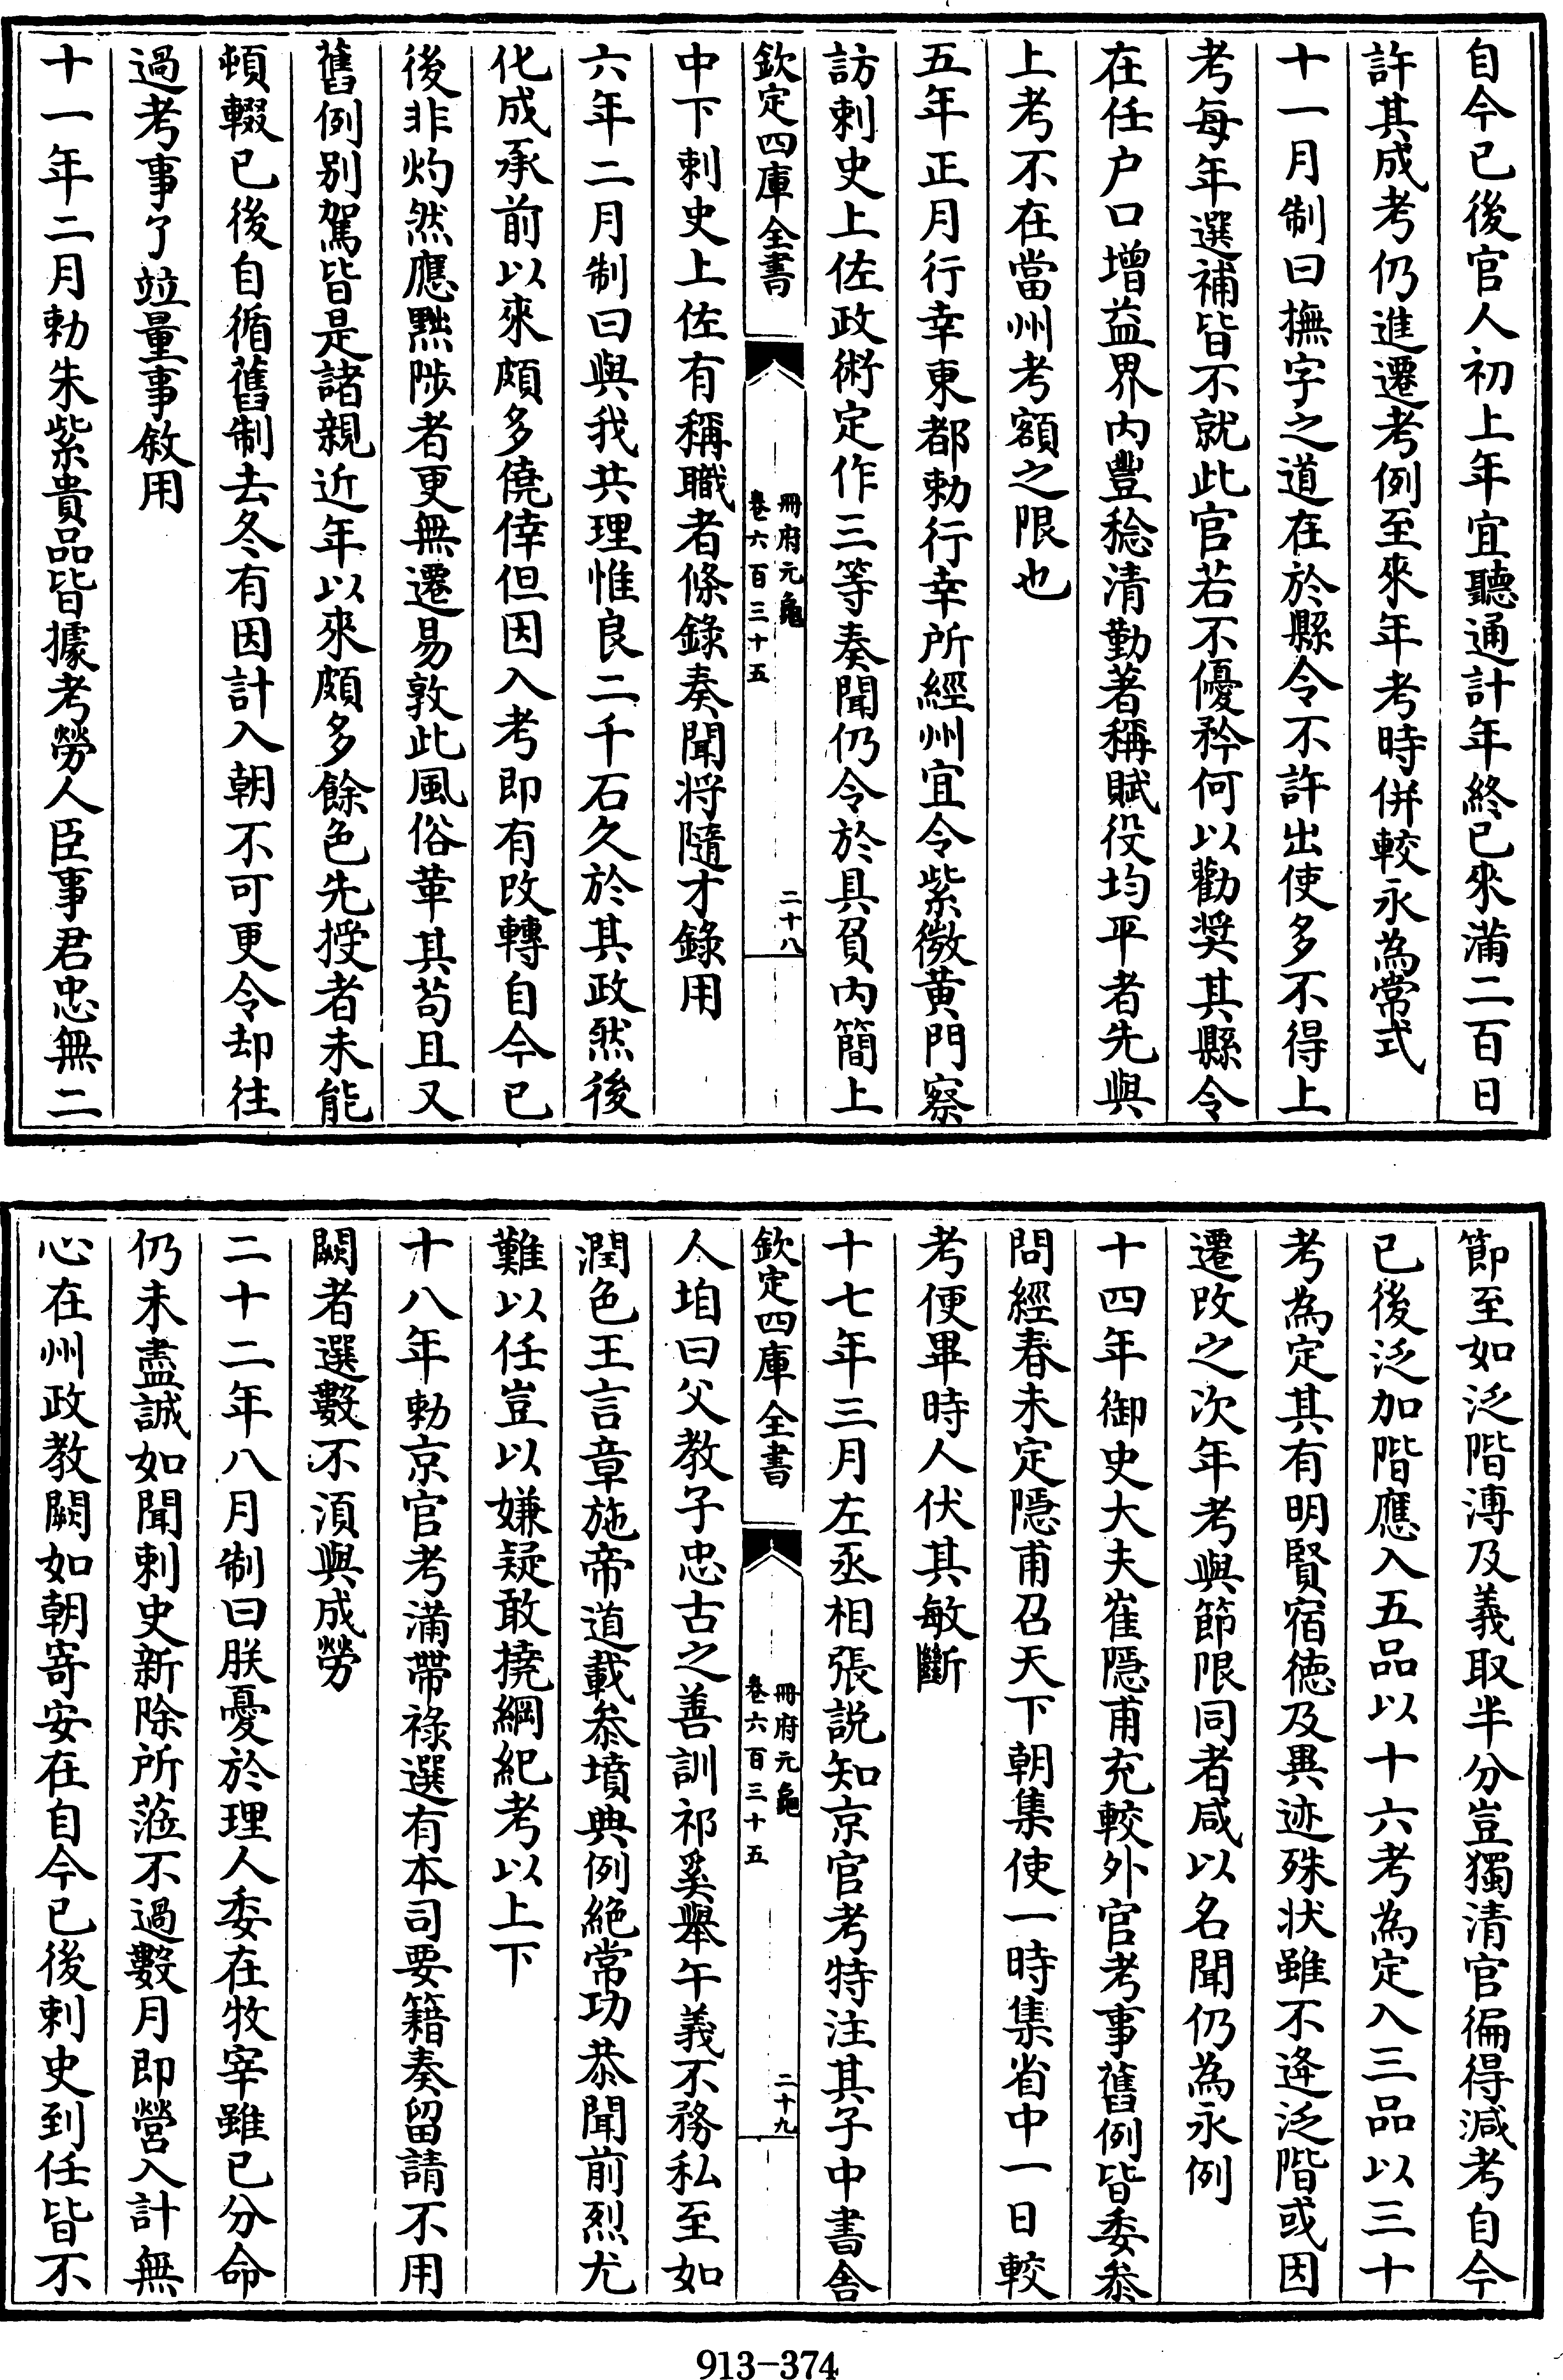 自今已後官人初上年宜聽通計年終已來滿二百日
許其成考仍進遷考例至來年考時併較永為常式
十一月制曰撫字之道在於縣令不許出使多不得上
考每年選補皆不就此官若不優矜何以勸奨其縣令
在任户口增益界内豐稔清勤著稱賦役均平者先與
上考不在當州考額之限也
五年正月行幸東都勅行幸所經州宜令紫微黄門察
訪刺史上佐政術定作三等奏聞仍令於具負内簡上
欽定四庫全書
冊府元龜
卷六百三十五
二十八
中下刺史上佐有稱職者條錄奏聞将隨才錄用
六年二月制曰與我共理惟良二千石久於其政然後
化成承前以來頗多僥倖但因入考即有改轉自今已
後非灼然應黜陟者更無遷易敦此風俗革其苟且又
舊例别駕皆是諸親近年以來頗多餘色先授者未能
頓輟已後自循舊制去冬有因計入朝不可更令却往
過考事了竝量事敘用
十一年二月勅朱紫貴品皆據考勞人臣事君忠無二
節至如泛階溥及義取半分豈獨清官徧得減考自今
已後泛加階應入五品以十六考為定入三品以三十
考為定其有明賢宿徳及異迹殊状雖不逄泛階或因
遷改之次年考與節限同者咸以名聞仍為永例
十四年御史大夫崔隠甫充較外官考事舊例皆委叅
問經春未定隠甫召天下朝集使一時集省中一日較
考便畢時人伏其敏斷
十七年三月左丞相張説知京官考特注其子中書舍
欽定四庫全書
冊府元龜
卷六百三十五
二十九
人垍曰父教子忠古之善訓祁奚舉午義不務私至如
潤色王言章施帝道載叅墳典例絶常功恭聞前烈尤
難以任豈以嫌疑敢撓綱紀考以上下
十八年勅京官考滿帶祿選有本司要籍奏留請不用
闕者選數不湏與成勞
二十二年八月制曰朕憂於理人委在牧宰雖已分命
仍未盡誠如聞刺史新除所蒞不過數月即營入計無
心在州政教闕如朝寄安在自今已後刺史到任皆不
913-374